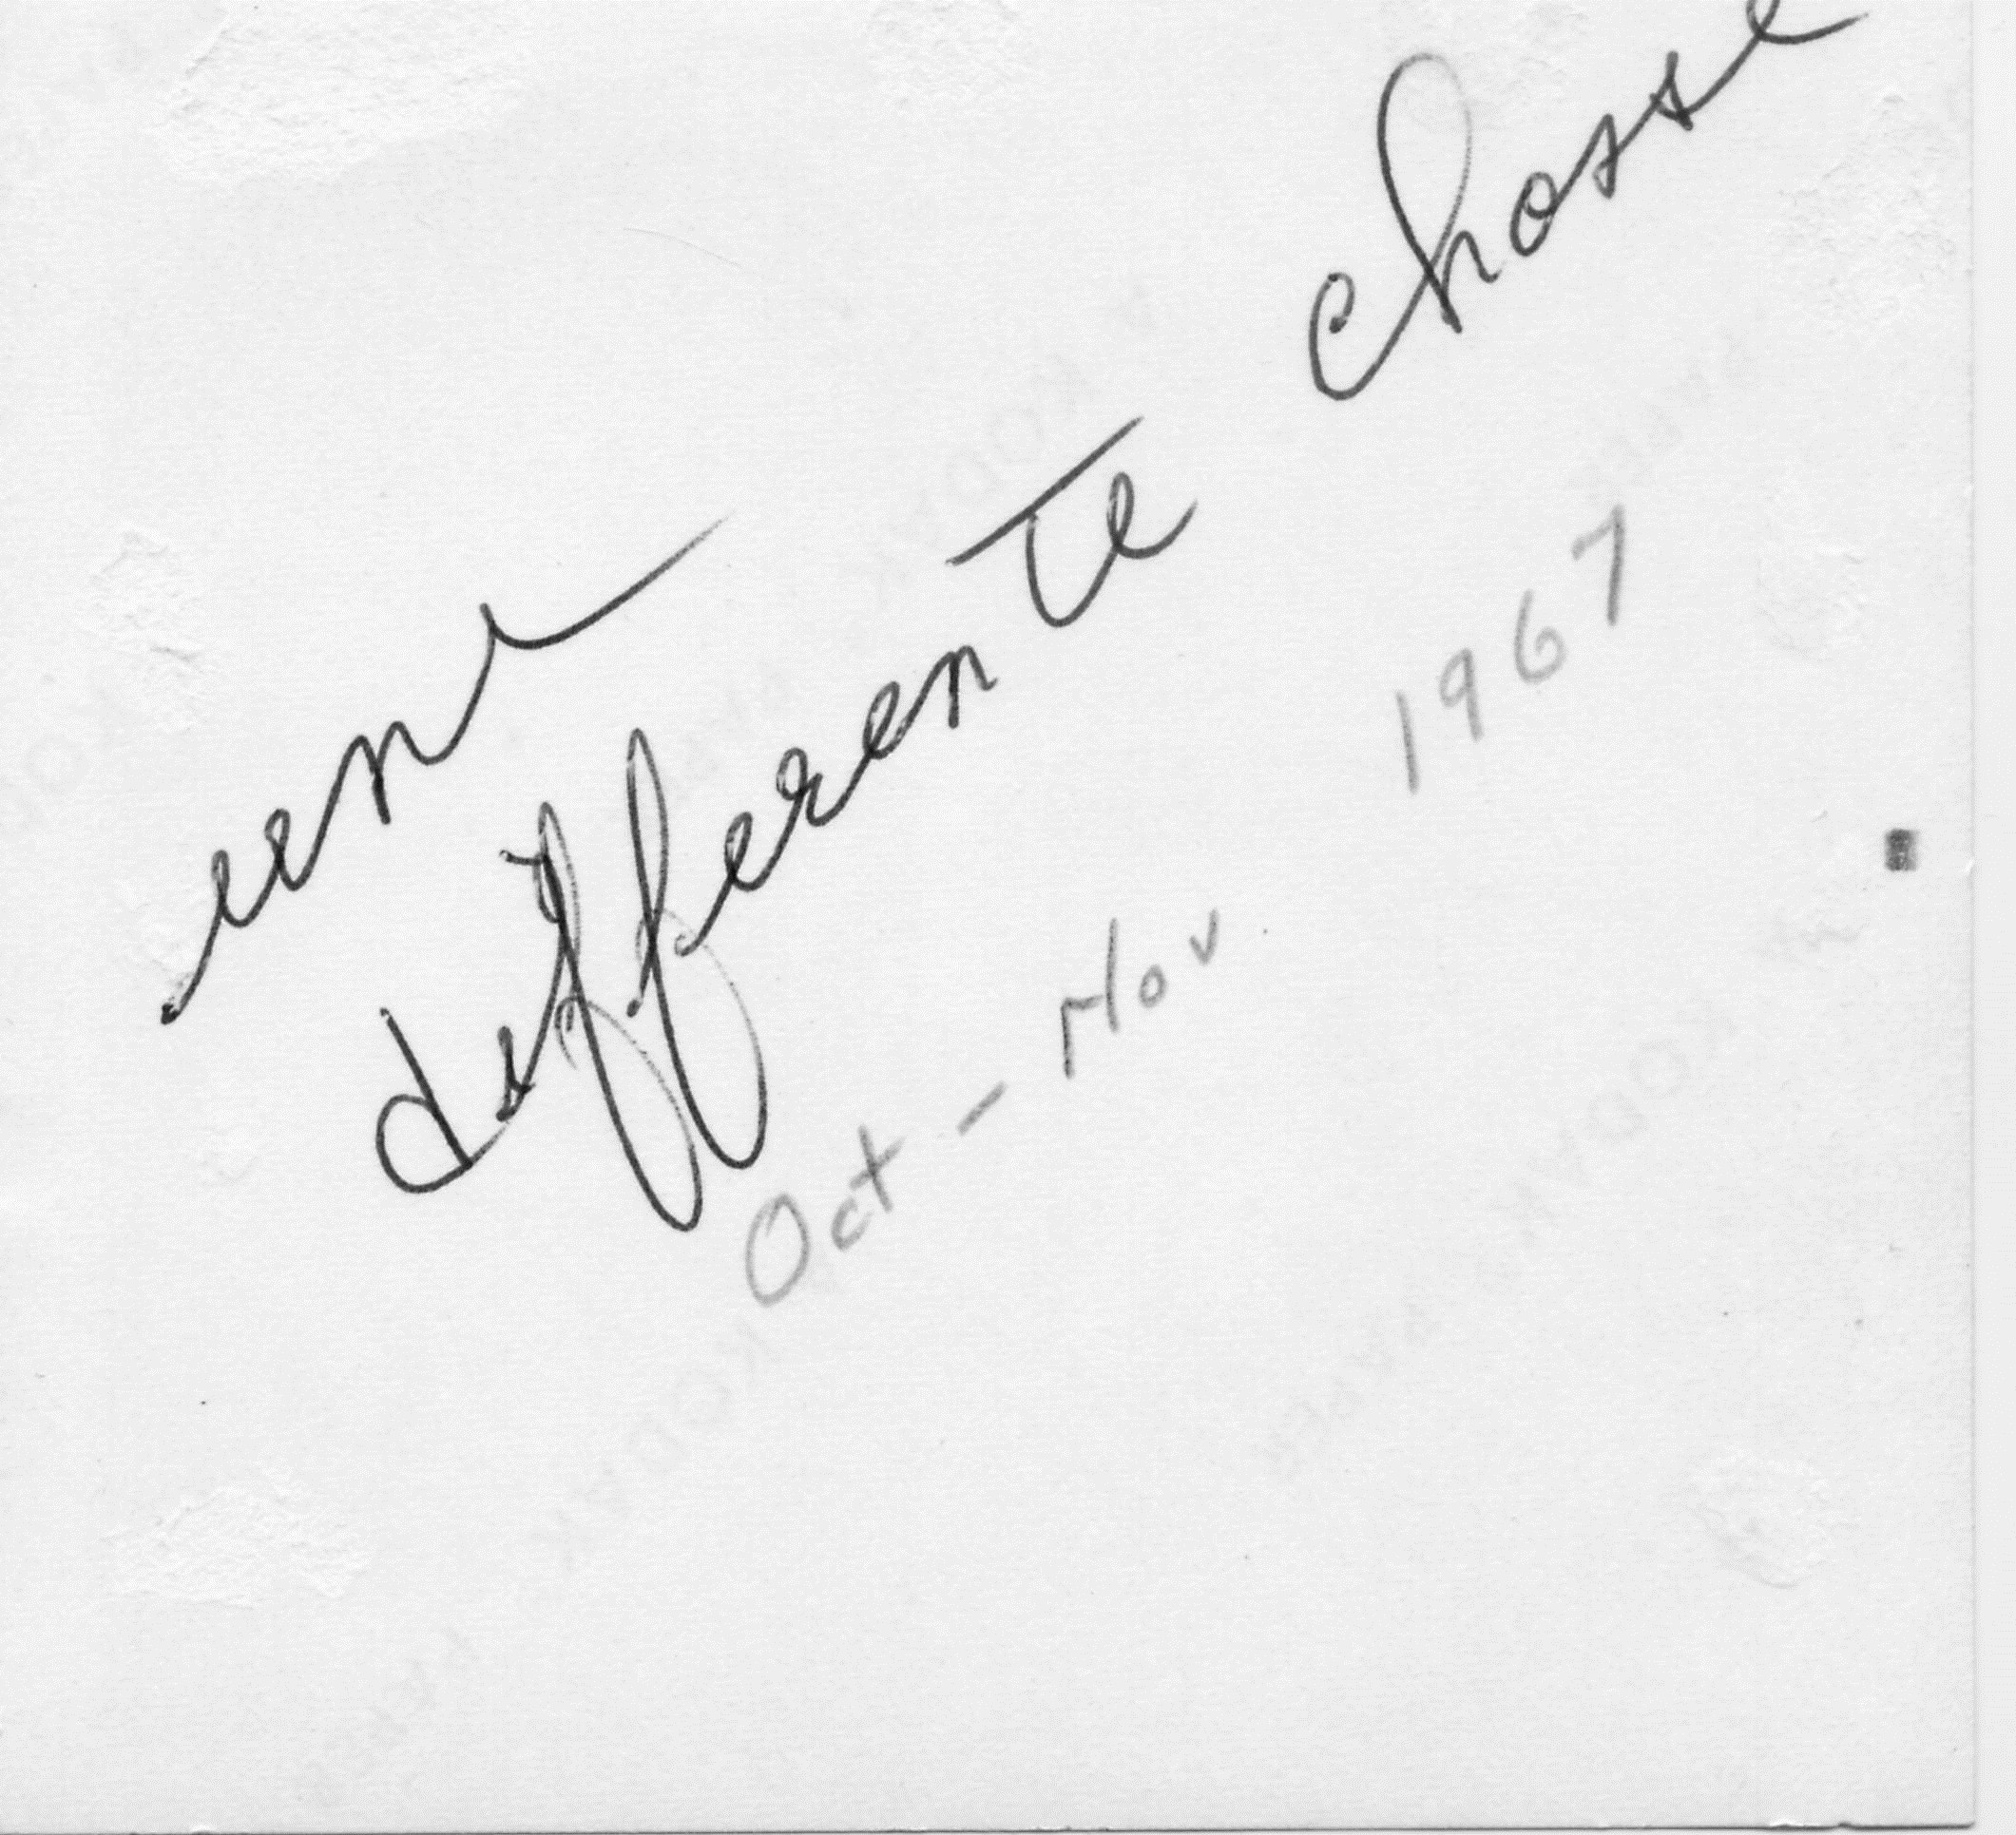 differente chosse
Oct - Nov 1967